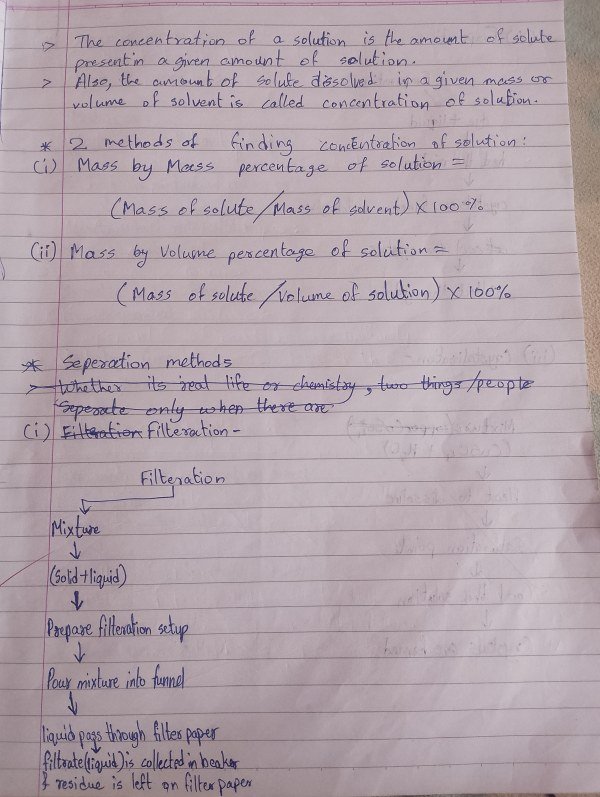 > The concentration of a solution is the amount of solute
present in a given amount of solution.
> Also, the amount of solute dissolved in a given mass or
volume of solvent is called concentration of solution.
* 2 methods of finding concentration of solution:
(i) Mass by Mass percentage of solution =
(Mass of solute/Mass of solvent) X 100%
(ii) Mass by Volume percentage of solution =
(Mass of solute/Volume of solution) X 100%
* Seperation methods
> Whether its real life or chemistry, two things/people
seperate only when there are
(i) Filteration Filteration -
Filteration
↓
Mixture
↓
(Solid+liquid)
↓
Prepare filteration setup
↓
Pour mixture into funnel
↓
liquid pass through filter paper
↓
filtrate(liquid) is collected in beaker
& residue is left on filter paper